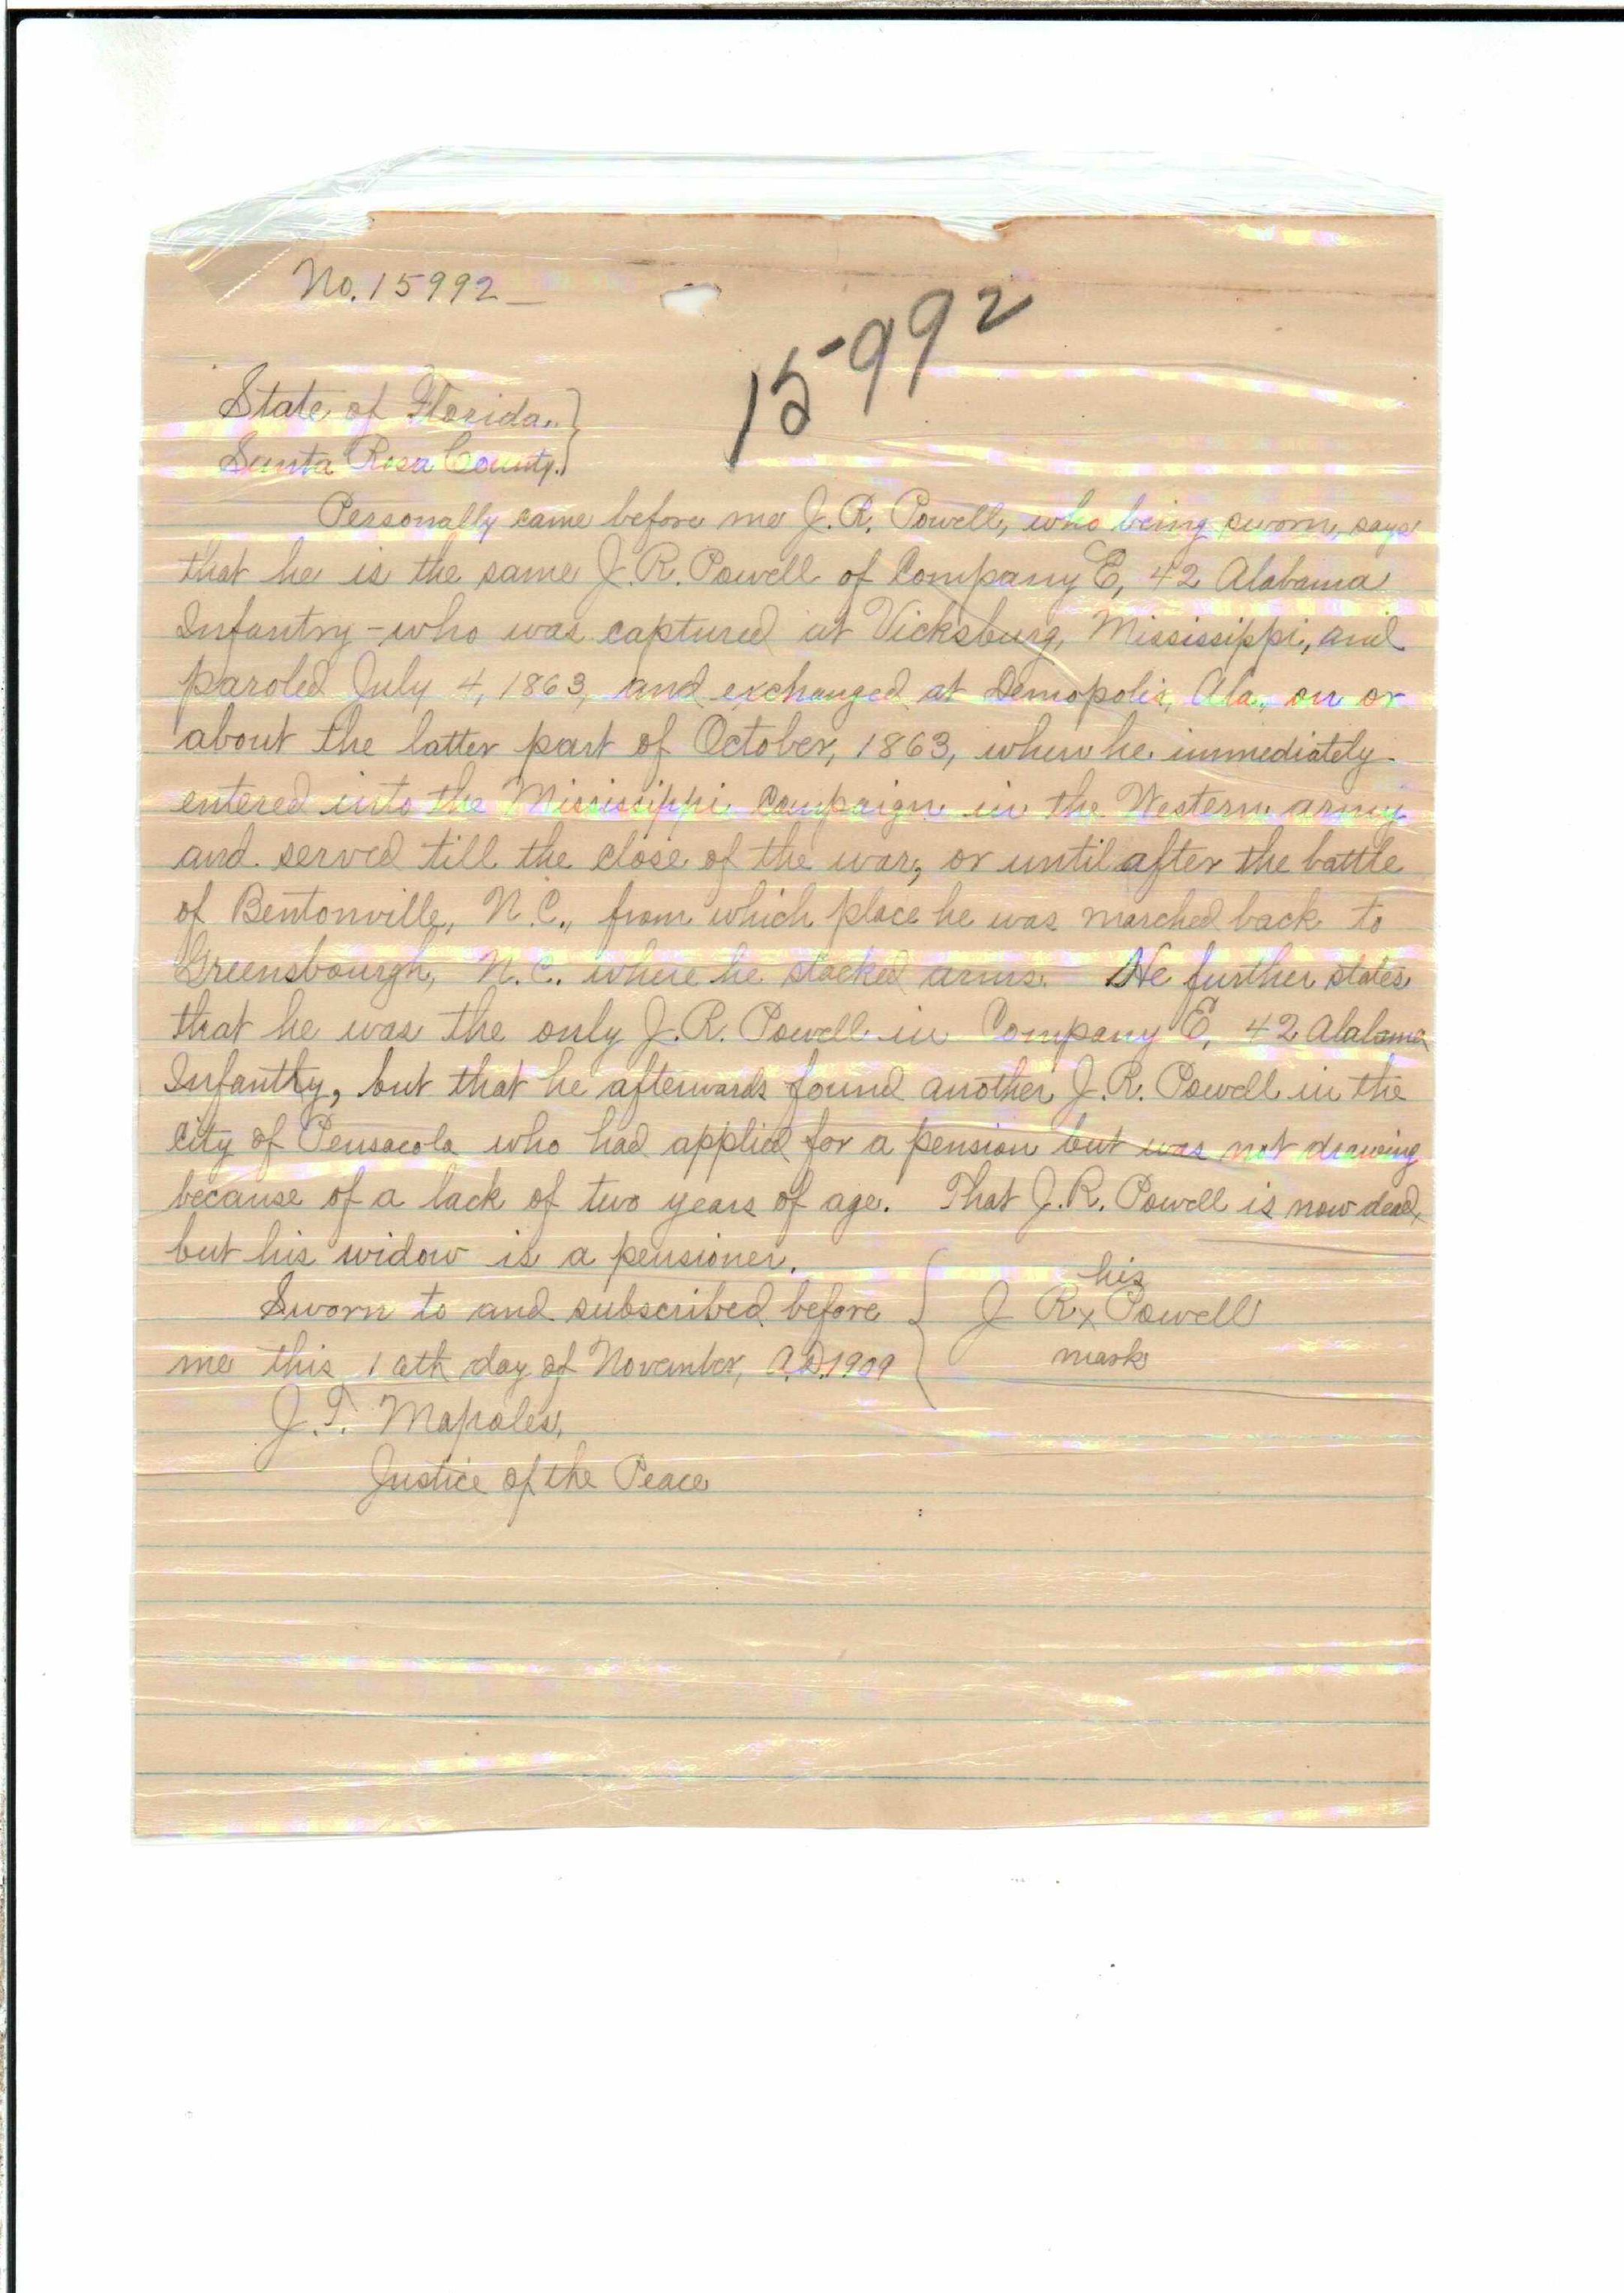 No. 15992
15992
State of Florida. }
Santa Rosa County. }
Personally came before me J. R. Powell, who being sworn, says
that he is the same J. R. Powell of Company E, 42 Alabama
Infantry - who was captured at Vicksburg, Mississippi, and
paroled July 4, 1863, and exchanged at Demopolis, Ala. on or
about the latter part of October, 1863, when he immediately
entered into the Mississippi Campaign in the Western army
and served till the close of the war, or until after the battle
of Bentonville, N. C., from which place he was marched back to
Greensbourgh, N. C. where he stacked arms. He further states
that he was the only J. R. Powell in Company E, 42 Alabama
Infantry, but that he afterwards found another J. R. Powell in the
City of Pensacola who had applied for a pension but was not drawing
because of a lack of two years of age. That J. R. Powell is now dead,
but his widow is a pensioner.
his
Sworn to and subscribed before { J R x Powell
me this day of November, A.D. 1909 mark
J. T. Mapoles,
Justice of the Peace